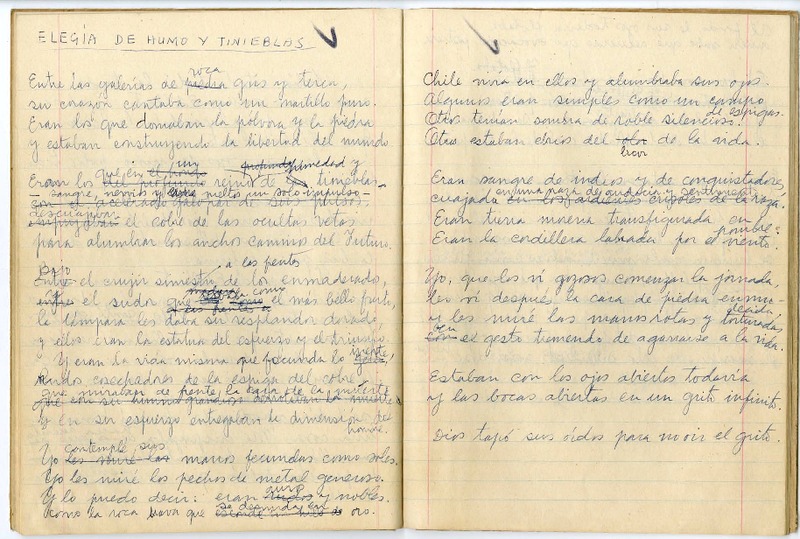 ELEGÍA DE HUMO Y TINIEBLAS
roca
Entre las galerías de piedra gris y terca,
su corazón cantaba como un martillo puro.
Eran los que domaban la pólvora y la piedra
y estaban construyendo la libertad del mundo.
que en un
Eran los del profundo reino de humedad y tinieblas
sangre, nervios y vetas en un solo impulso
con el acelerado galopar de sus pulsos.
descuajaban
el cobre de las ocultas vetas
para alumbrar los anchos caminos del Futuro.
Bajo
Entre el crujir siniestro de los enmaderados,
a las frentes
y el sudor que como el más bello fruto,
la lámpara les daba su resplandor dorado,
y ellos eran la estatua del esfuerzo y el triunfo.
Y eran la vida misma que fecunda lo inerte,
Rudos cosechadores de la espiga del cobre
que miraban de frente la cara de la muerte
que con su humor grandioso derrotaban la muerte
Y en su esfuerzo entregaban la dimensión del
hombre.
contemplé sus
Yo les miré las manos fecundas como soles.
Yo les miré los pechos de metal generoso.
Y lo puedo decir: eran puros y nobles.
como la roca brava que se desnuda en oro.
Chile vivía en ellos y alumbraba sus ojos.
Algunos eran simples como un campo
de espigas.
Otros tenían sombra de roble silencioso.
Otros estaban ebrios del olor de la vida.
licor
Eran sangre de indios y de conquistadores,
en una raza de audacia y sentimientos
cuajada en los ardientes crisoles de la raza.
Eran tierra morena transfigurada en
hombre:
Eran la cordillera labrada por el viento.
Yo, que los vi gozosos comenzar la jornada,
les vi después la cara de piedra enmu-
decida,
y les miré las manos rotas y torturadas,
con el gesto tremendo de agarrarse a la vida.
Estaban con los ojos abiertos todavía
y las bocas abiertas en un grito infinito.
Dios tapó sus oídos para no oír el grito.